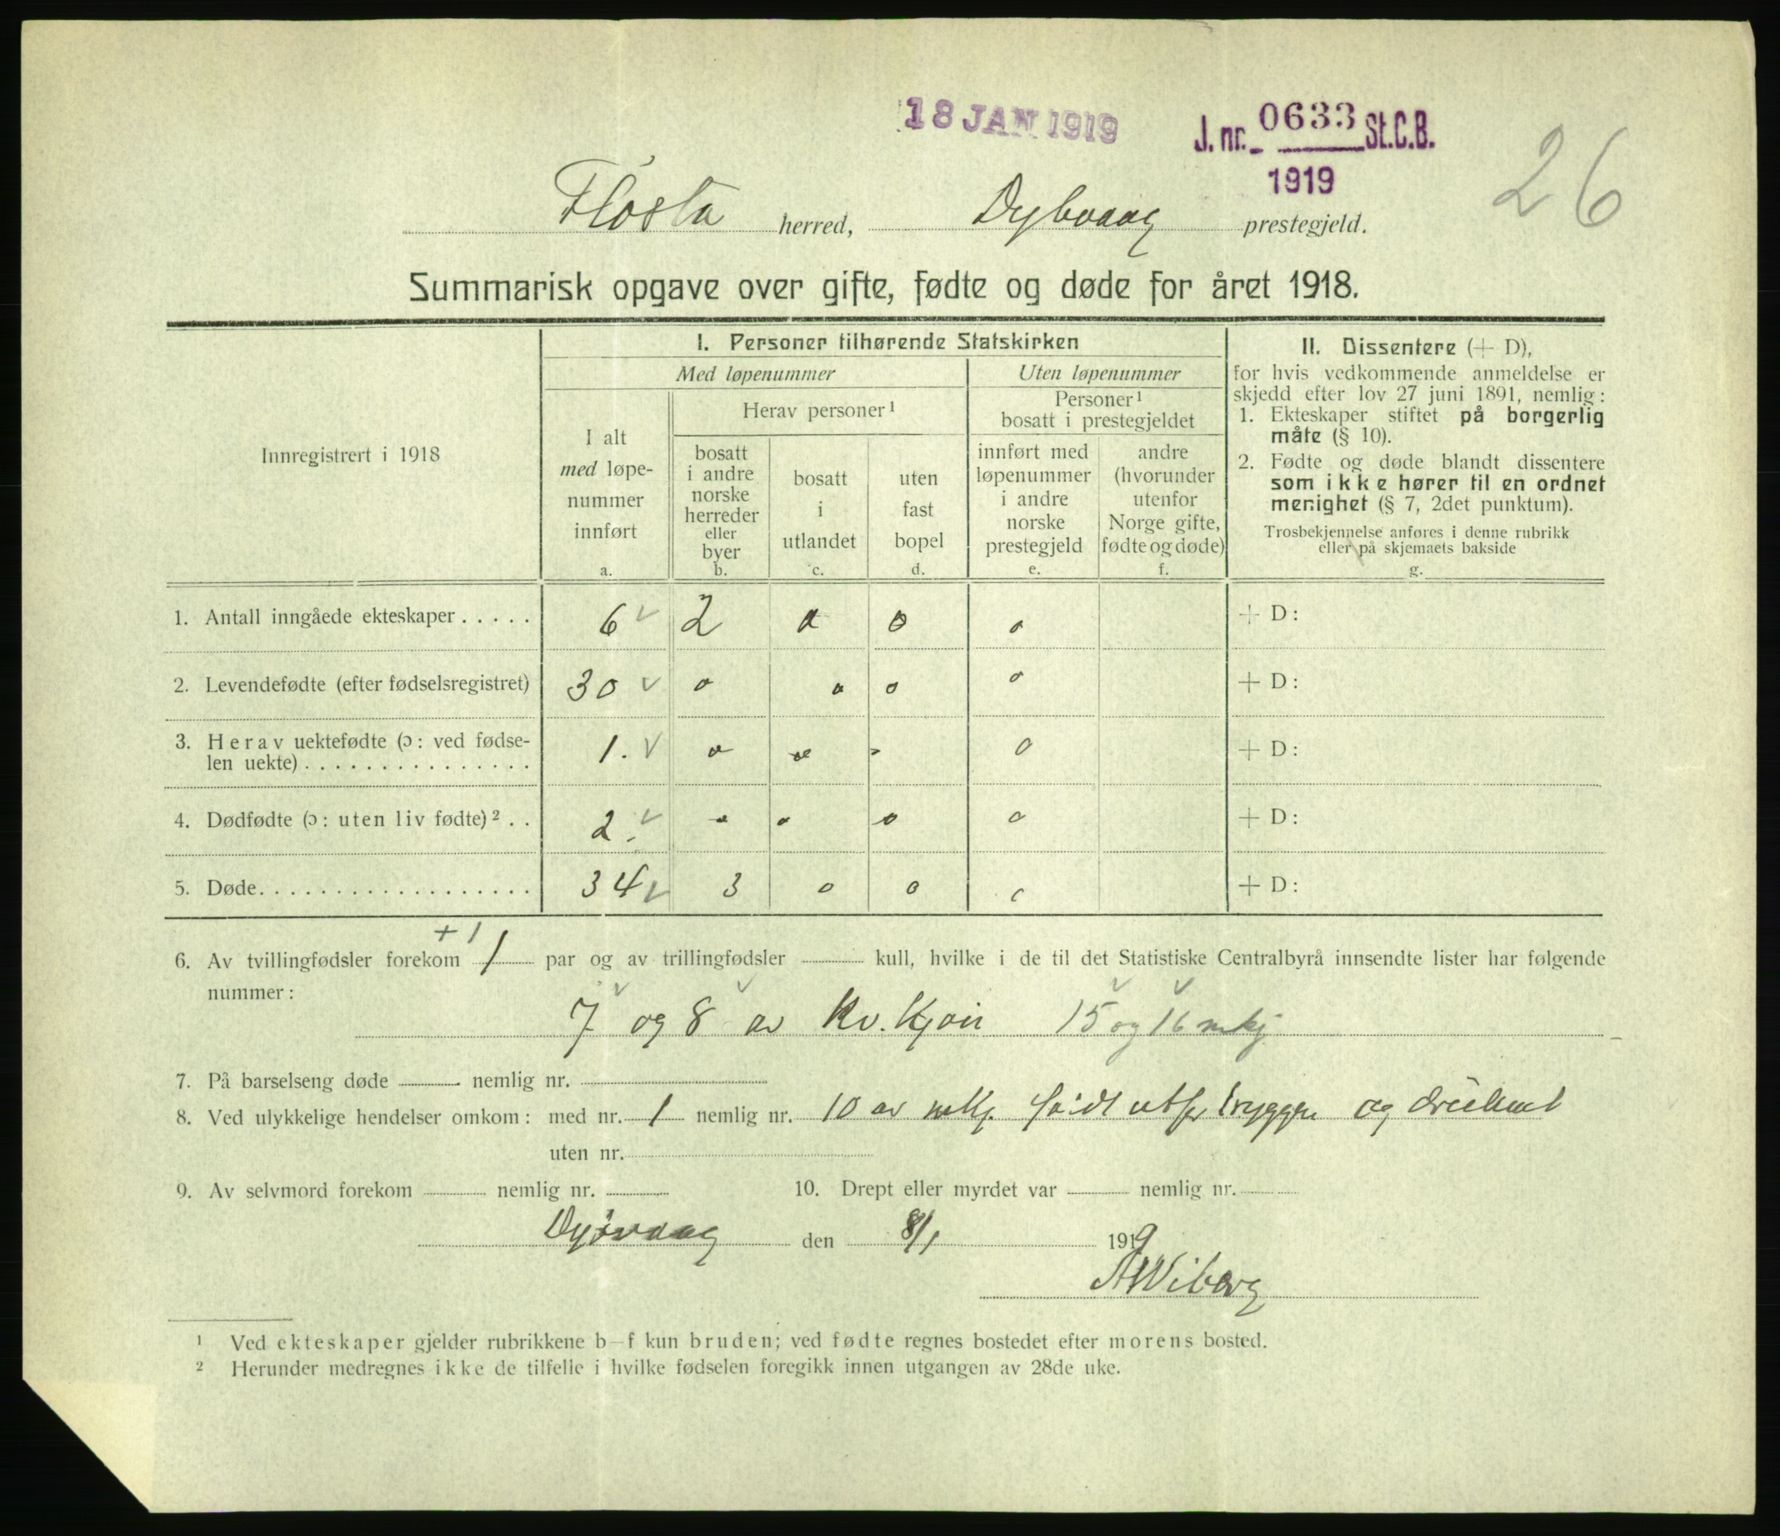 18 JAN 1919
J. nr. 0633 St.C.B.
1919
26
Flosta herred, Dybvaag prestegjeld.
Summarisk opgave over gifte, fødte og døde for året 1918.
Innregistrert i 1918
I. Personer tilhørende Statskirken
Med løpenummer
Uten løpenummer
I alt
med løpe-
nummer
innført
a.
Herav personer ¹
bosatt
i andre
norske
herreder
eller
byer
b.
bosatt
i
utlandet
c.
uten
fast
bopel
d.
Personer ¹
bosatt i prestegjeldet
innført med
løpenummer
i andre
norske
prestegjeld
e.
andre
(hvorunder
utenfor
Norge gifte,
fødte og døde)
f.
II. Dissentere (+ D),
for hvis vedkommende anmeldelse er
skjedd efter lov 27 juni 1891, nemlig:
1. Ekteskaper stiftet på borgerlig
måte (§ 10).
2. Fødte og døde blandt dissentere
som ikke hører til en ordnet
menighet (§ 7, 2det punktum).
Trosbekjennelse anføres i denne rubrikk
eller på skjemaets bakside
g.
1. Antall inngåede ekteskaper . . . . . 6 2 0 0 0 + D:
2. Levendefødte (efter fødselsregistret) 30 0 0 0 0 + D:
3. Herav uektefødte (ɔ: ved fødse-
len uekte) . . . . . . . . . . . . . . . 1. 0 0 0 0 + D:
4. Dødfødte (ɔ: uten liv fødte) ² . . 2 0 0 0 0 + D:
5. Døde. . . . . . . . . . . . . . . . . . 34 3 0 0 0 + D:
+1
6. Av tvillingfødsler forekom 1 par og av trillingfødsler kull, hvilke i de til det Statistiske Centralbyrå innsendte lister har følgende
nummer:
7 og 8 av Kv. Kjøn 15 og 16 mkj
7. På barselseng døde nemlig nr.
8. Ved ulykkelige hendelser omkom: med nr. 1 nemlig nr. 10 av mkj. faldt utfor bryggen og druknet
uten nr.
9. Av selvmord forekom nemlig nr. 10. Drept eller myrdet var nemlig nr.
Dybvaag den 8/1 1919
Wiborg
¹ Ved ekteskaper gjelder rubrikkene b–f kun bruden; ved fødte regnes bostedet efter morens bosted.
² Herunder medregnes ikke de tilfelle i hvilke fødselen foregikk innen utgangen av 28de uke.